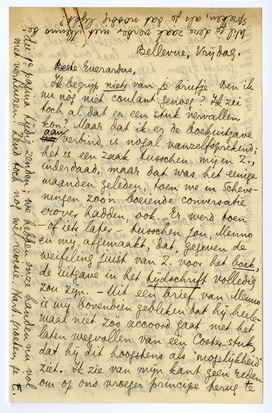 Bellevue, Vrijdag.
Beste Everardus,
Ik begrijp niets van je briefje. Ben ik
nu nog niet coulant genoeg? Ik zei
toch al dat er een stuk vervallen
kon? Maar dat ik er de boekuitgave
aan verbind, is nogal vanzelfsprekend;
het is een zaak tusschen mij en Z.,
inderdaad, maar dat was het eenige
maanden geleden, toen we in Scheve-
ningen zoo'n boeiende conversatie
erover hadden, ook. Er werd toen
of iets later tusschen Jan, Menno
en mij afgemaakt, dat, gegeven de
weifeling juist van Z. voor het boek,
de uitgave in het tijdschrift volledig
zou zijn. Uit een brief van Menno
is mij bovendien gebleken dat hij hele-
maal niet zoo accoord gaat met het
laten wegvallen van een Coster-stuk,
dat hij dit hoogstens als "mogelijkheid"
ziet. Ik zie van mijn kant geen reden
om op ons vroeger principe terug te